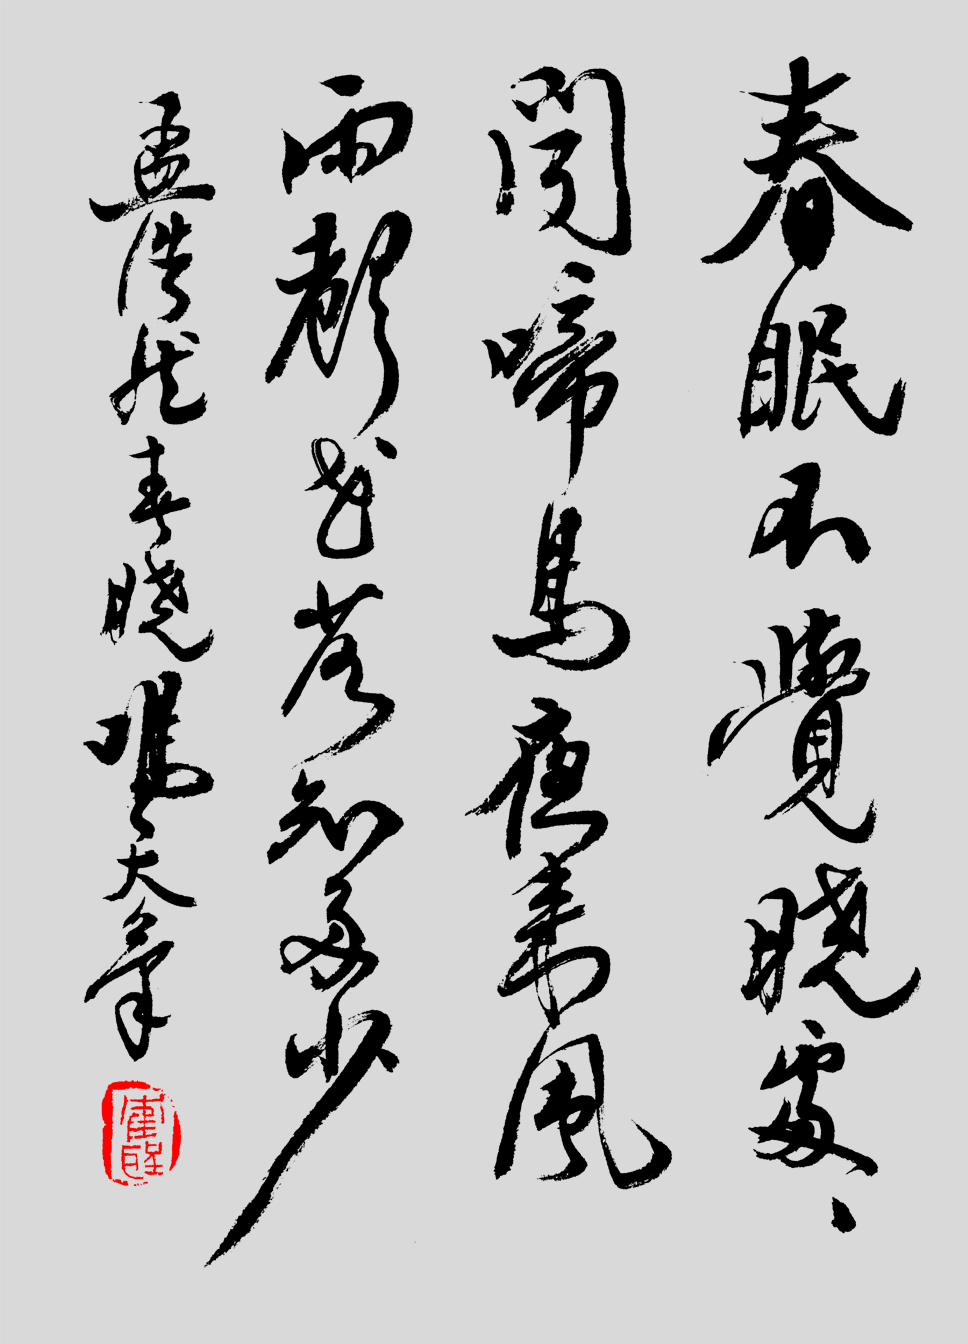 春眠不覺晓處〻
聞啼鳥夜來風
雨聲花落知多少
孟浩然春晓大